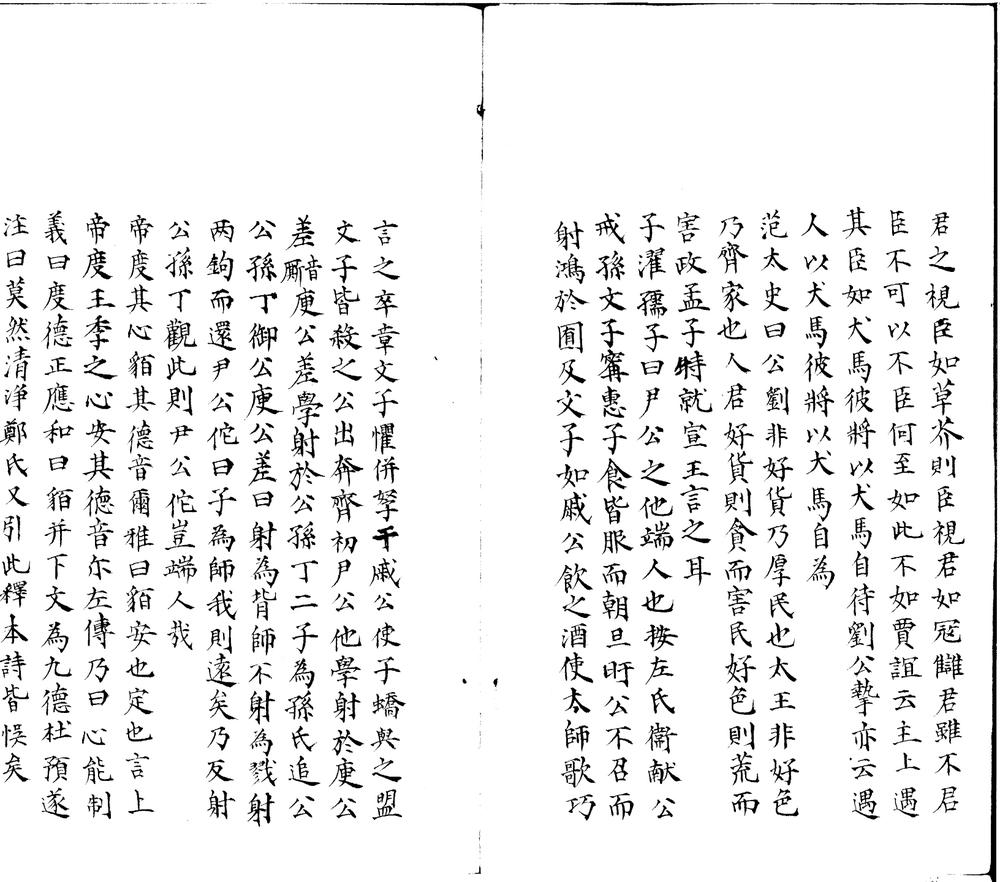 君之視臣如草芥則臣視君如冦讎君雖不君
臣不可以不臣何至如此不如賈誼云主上遇
其臣如犬馬彼將以犬馬自待劉公摯亦云遇
人以犬馬彼將以犬馬自為
范太史曰公劉非好貨乃厚民也太王非好色
乃齊家也人君好貨則貪而害民好色則荒而
害政孟子特就宣王言之耳
子濯孺子曰尹公之他端人也按左氏衞献公
戒孫文子寗惠子食皆服而朝旦旰公不召而
射鴻於囿及文子如戚公飲之酒使太師歌巧
言之卒章文子懼併孥干戚公使子蟜與之盟
文子皆殺之公出奔齊初尹公他學射於庾公
差厮音庾公差學射於公孫丁二子為孫氏追公
公孫丁御公庾公差曰射為背師不射為戮射
两鉤而還尹公佗曰子為師我則遠矣乃反射
公孫丁觀此則尹公佗豈端人㢤
帝度其心貊其德音爾雅曰貊安也定也言上
帝度王季之心安其德音尔左傳乃曰心能制
義曰度德正應和曰貊并下文為九德杜預遂
注曰莫然清浄鄭氏又引此釋本詩皆悮矣